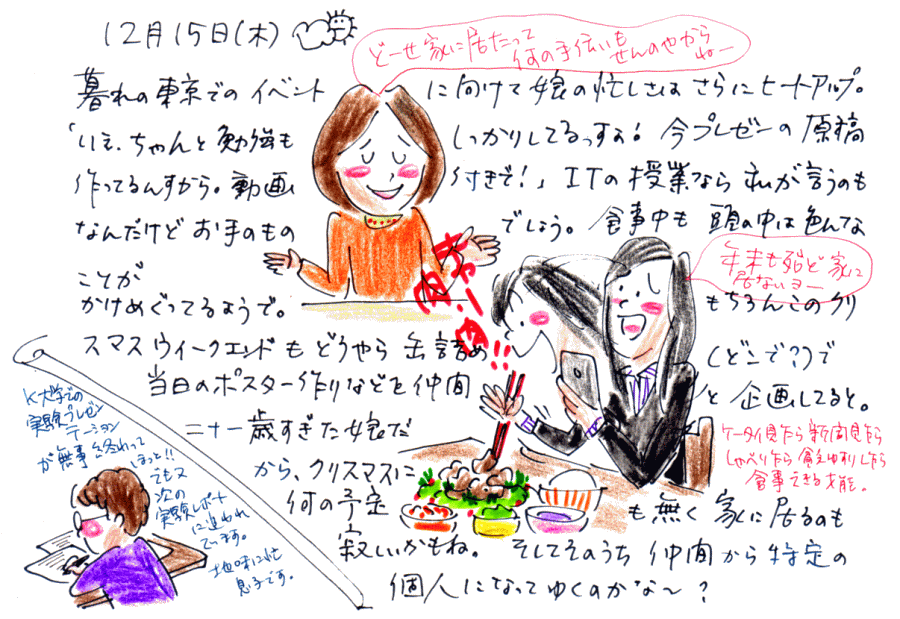 12月15日(木)
どーせ家に居たって
何の手伝いも
せんのやから
ねー
暮れの東京でのイベント に向けて娘の忙しさはさらにヒートアップ。
「いえ、ちゃんと勉強も しっかりしてるっすよ！今プレゼンの原稿
作ってるんすから。動画 付きで！」ITの授業なら私が言うのも
なんだけどお手のもの でしょう。食事中も頭の中は色んな
ことが
かけめぐってるようで。 もちろんこのクリ
スマスウィークエンドもどうやら缶詰め (どこで？)で
当日のポスター作りなどを仲間 と企画してると。
二十一歳すぎた娘だ
から、クリスマスに
何の予定 も無く家に居るのも
寂しいかもね。そしてそのうち仲間から特定の
個人になってゆくのかな〜？
年末も殆ど家に
居ないヨー
おやー
肉、肉!!
ケータイ見たら新聞見たら
しゃべりたら食えゆりしたら
食事できる才能。
K大学での
実験プレゼン
テーション
が無事終わって
ほっと!!
でも又
次の
実験レポート
に追われ
ています。
地味に忙し
息子です。